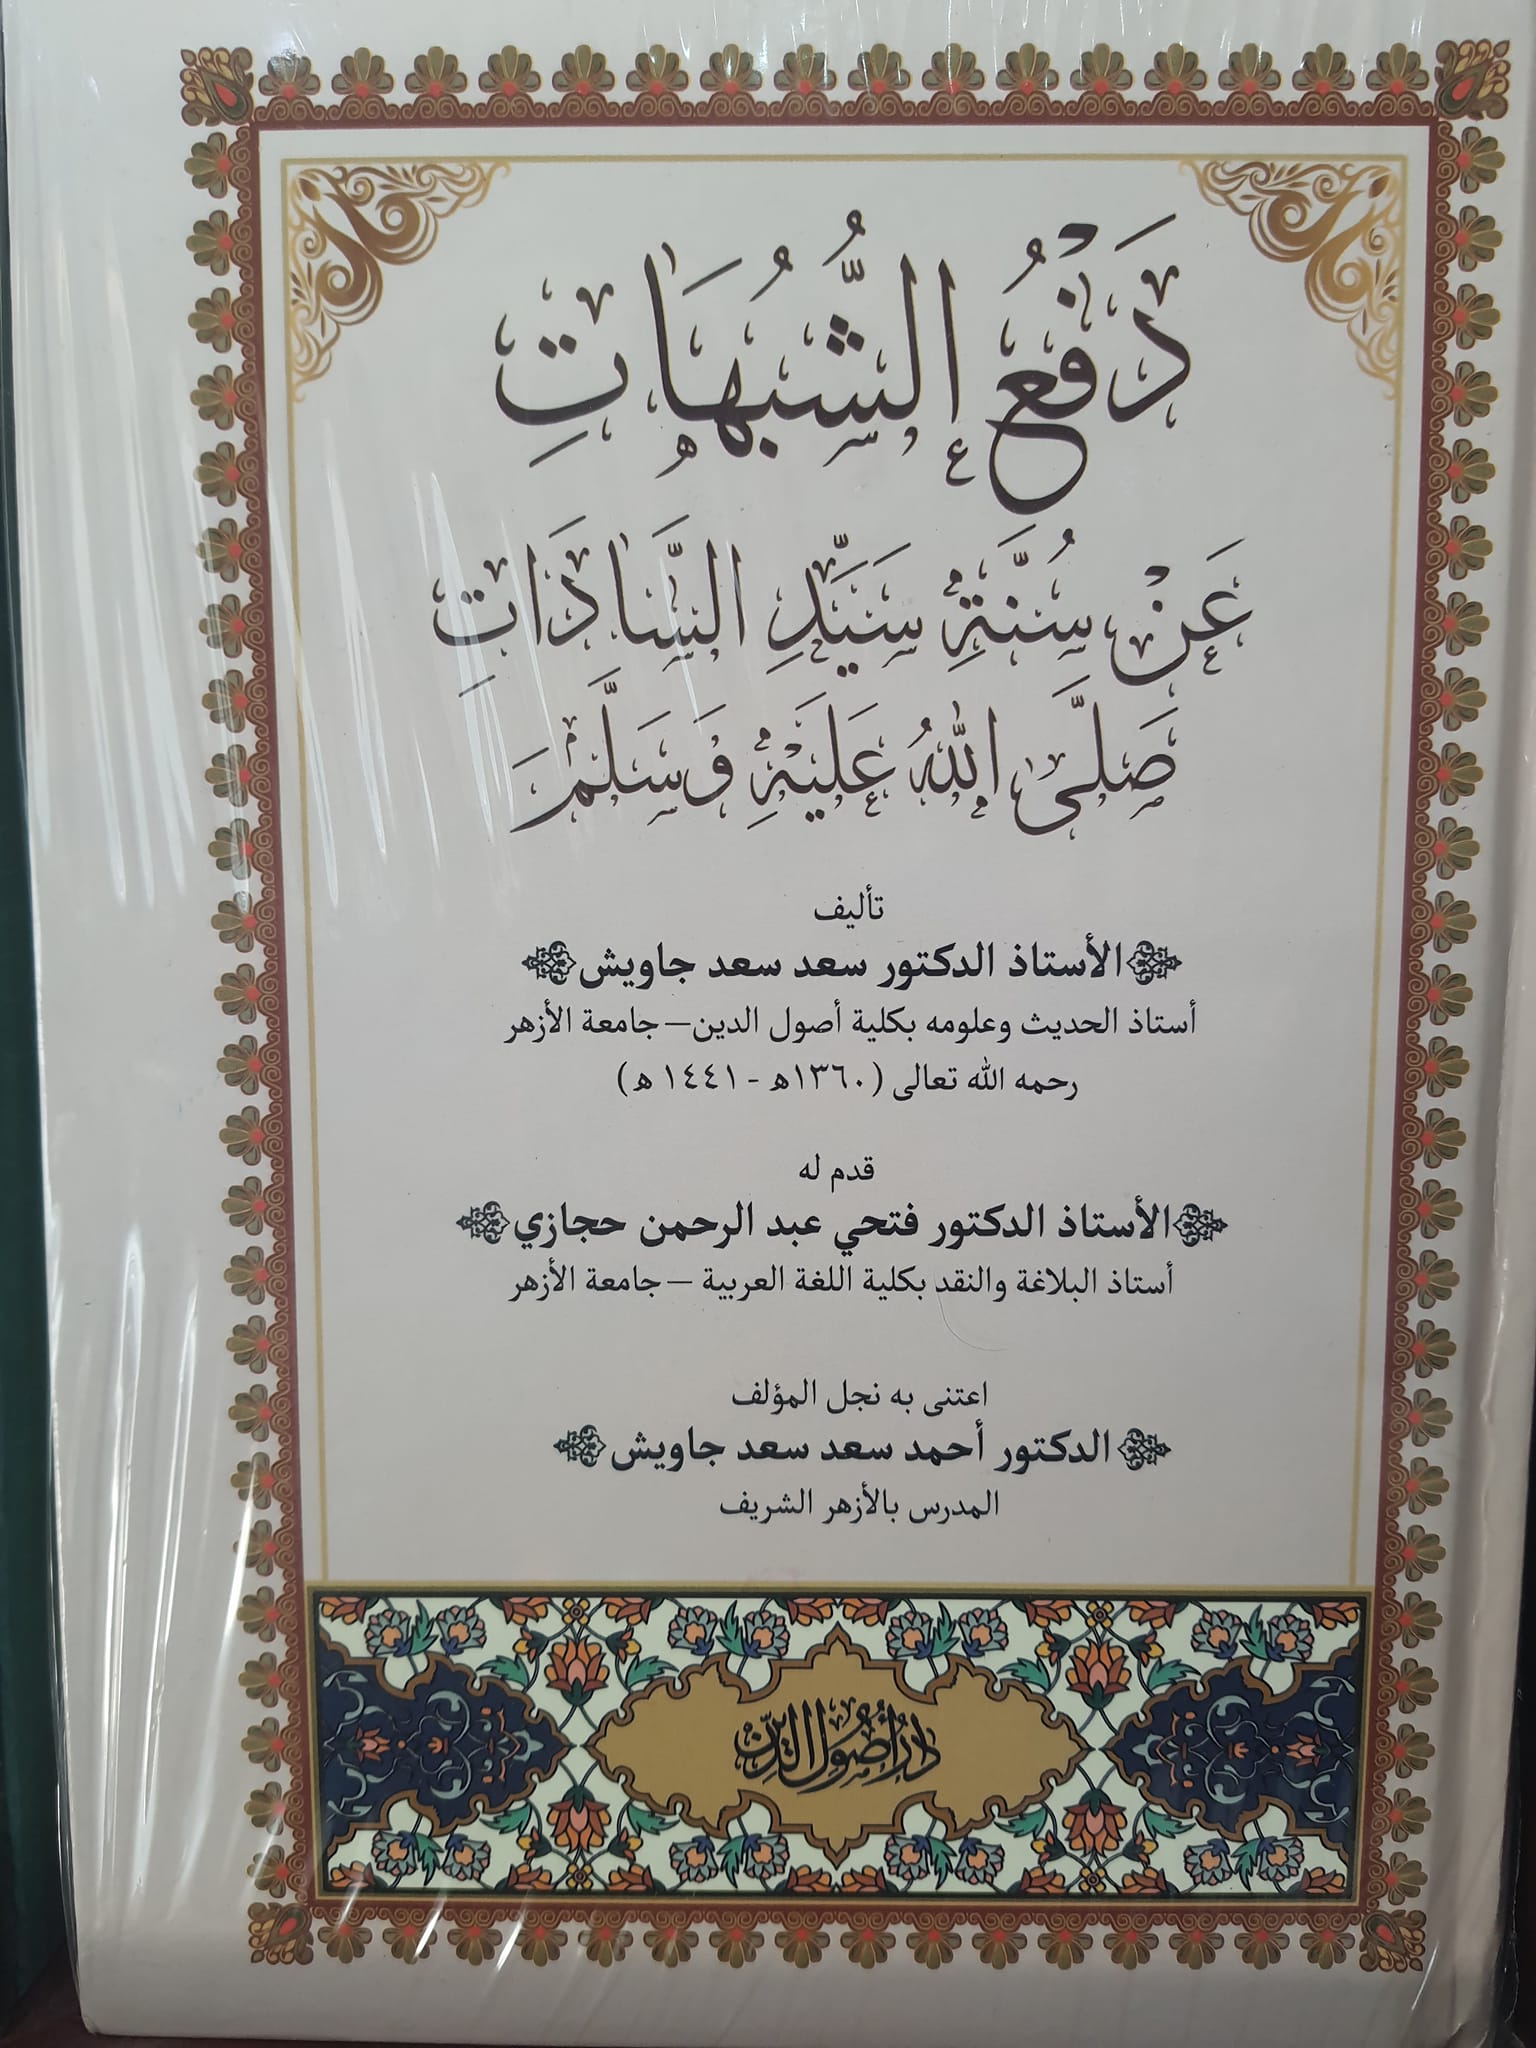 دَفْعُ الشُّبُهَاتِ
عَنْ سُنَّةِ سَيِّدِ السَّادَاتِ
صَلَّى اللهُ عَلَيْهِ وَسَلَّمَ
تأليف
الأستاذ الدكتور سعد سعد جاويش
أستاذ الحديث وعلومه بكلية أصول الدين – جامعة الأزهر
رحمه الله تعالى (١٣٦٠هـ - ١٤٤١ هـ)
قدم له
الأستاذ الدكتور فتحي عبد الرحمن حجازي
أستاذ البلاغة والنقد بكلية اللغة العربية – جامعة الأزهر
اعتنى به نجل المؤلف
الدكتور أحمد سعد سعد جاويش
المدرس بالأزهر الشريف
دار أصول الدين